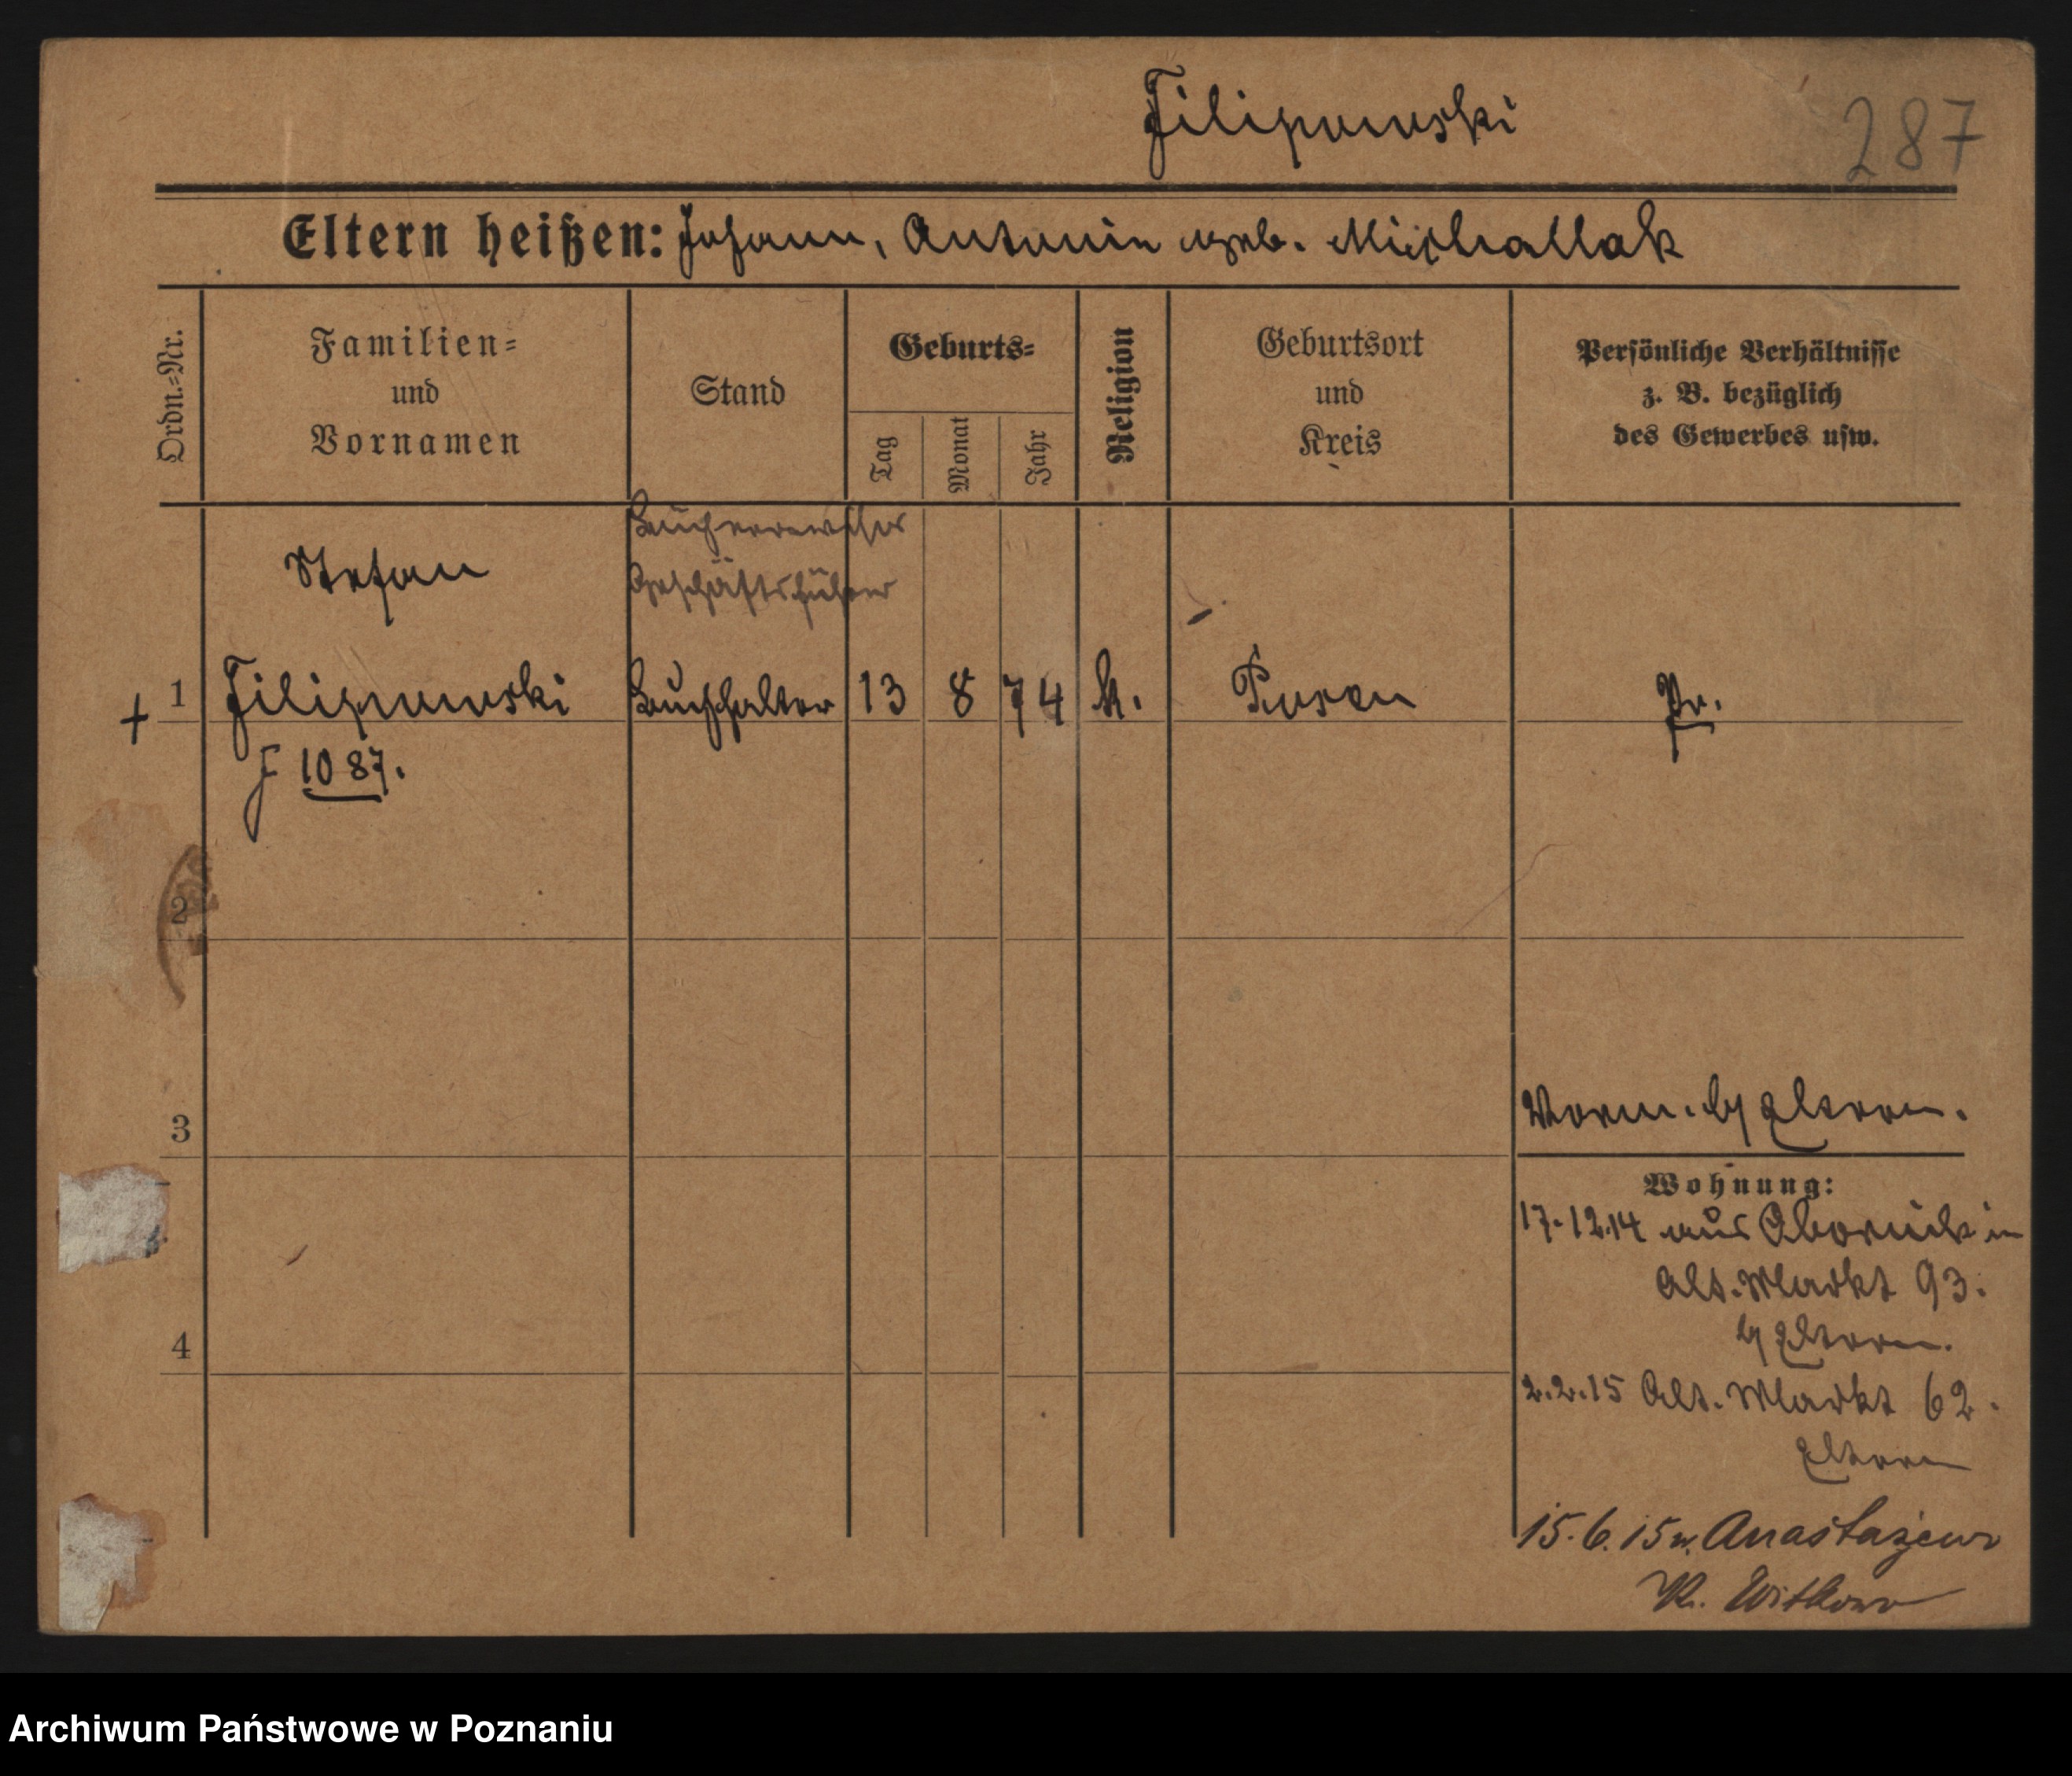 Filipowski
287
Eltern heißen: Johann, Antonin geb. Michallak
Ordn.=Nr.
Familien=
und
Vornamen
Stand
Geburts=
Tag
Monat
Jahr
Religion
Geburtsort
und
Kreis
Persönliche Verhältnisse
z. B. bezüglich
des Gewerbes usw.
Bücherrevisor
Stefan
Geschäftsführer
+ 1 Filipowski Buchhalter 13 8 74 k. Posen Pr.
F 1087.
2
3
Worm. b/ Eltern.
Wohnung:
17.12.14 aus Obornik in
Alt. Markt 93.
b/ Eltern.
4
2.2.15 Alt. Markt 62.
Eltern
15.6.15 n. Anastazewo
Kr. Witkowo
Archiwum Państwowe w Poznaniu